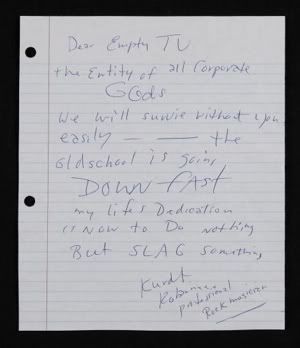 Dear Empty TV
the Entity of all Corporate
GOds
We will survive without you
easily — — the
oldschool is going
DOWN FAST
my life's Dedication
is Now to Do nothing
But SLAG something
Kurdt
professional
Rock musician